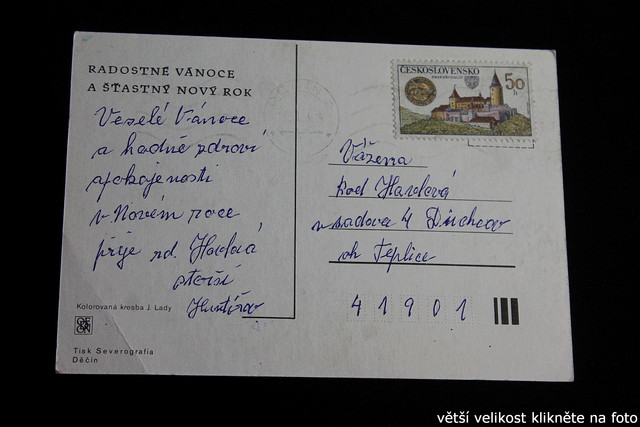 RADOSTNÉ VÁNOCE
A ŠŤASTNÝ NOVÝ ROK
Veselé Vánoce
a hodně zdraví
spokojenosti
v Novém roce
přeje rod.
starší
Kolorovaná kresba J. Lady
Tisk Severografia
Děčín
ČESKOSLOVENSKO
50
h
Vážená
rod
sadová 4 Duchcov
ok Teplice
41901
větší velikost klikněte na foto